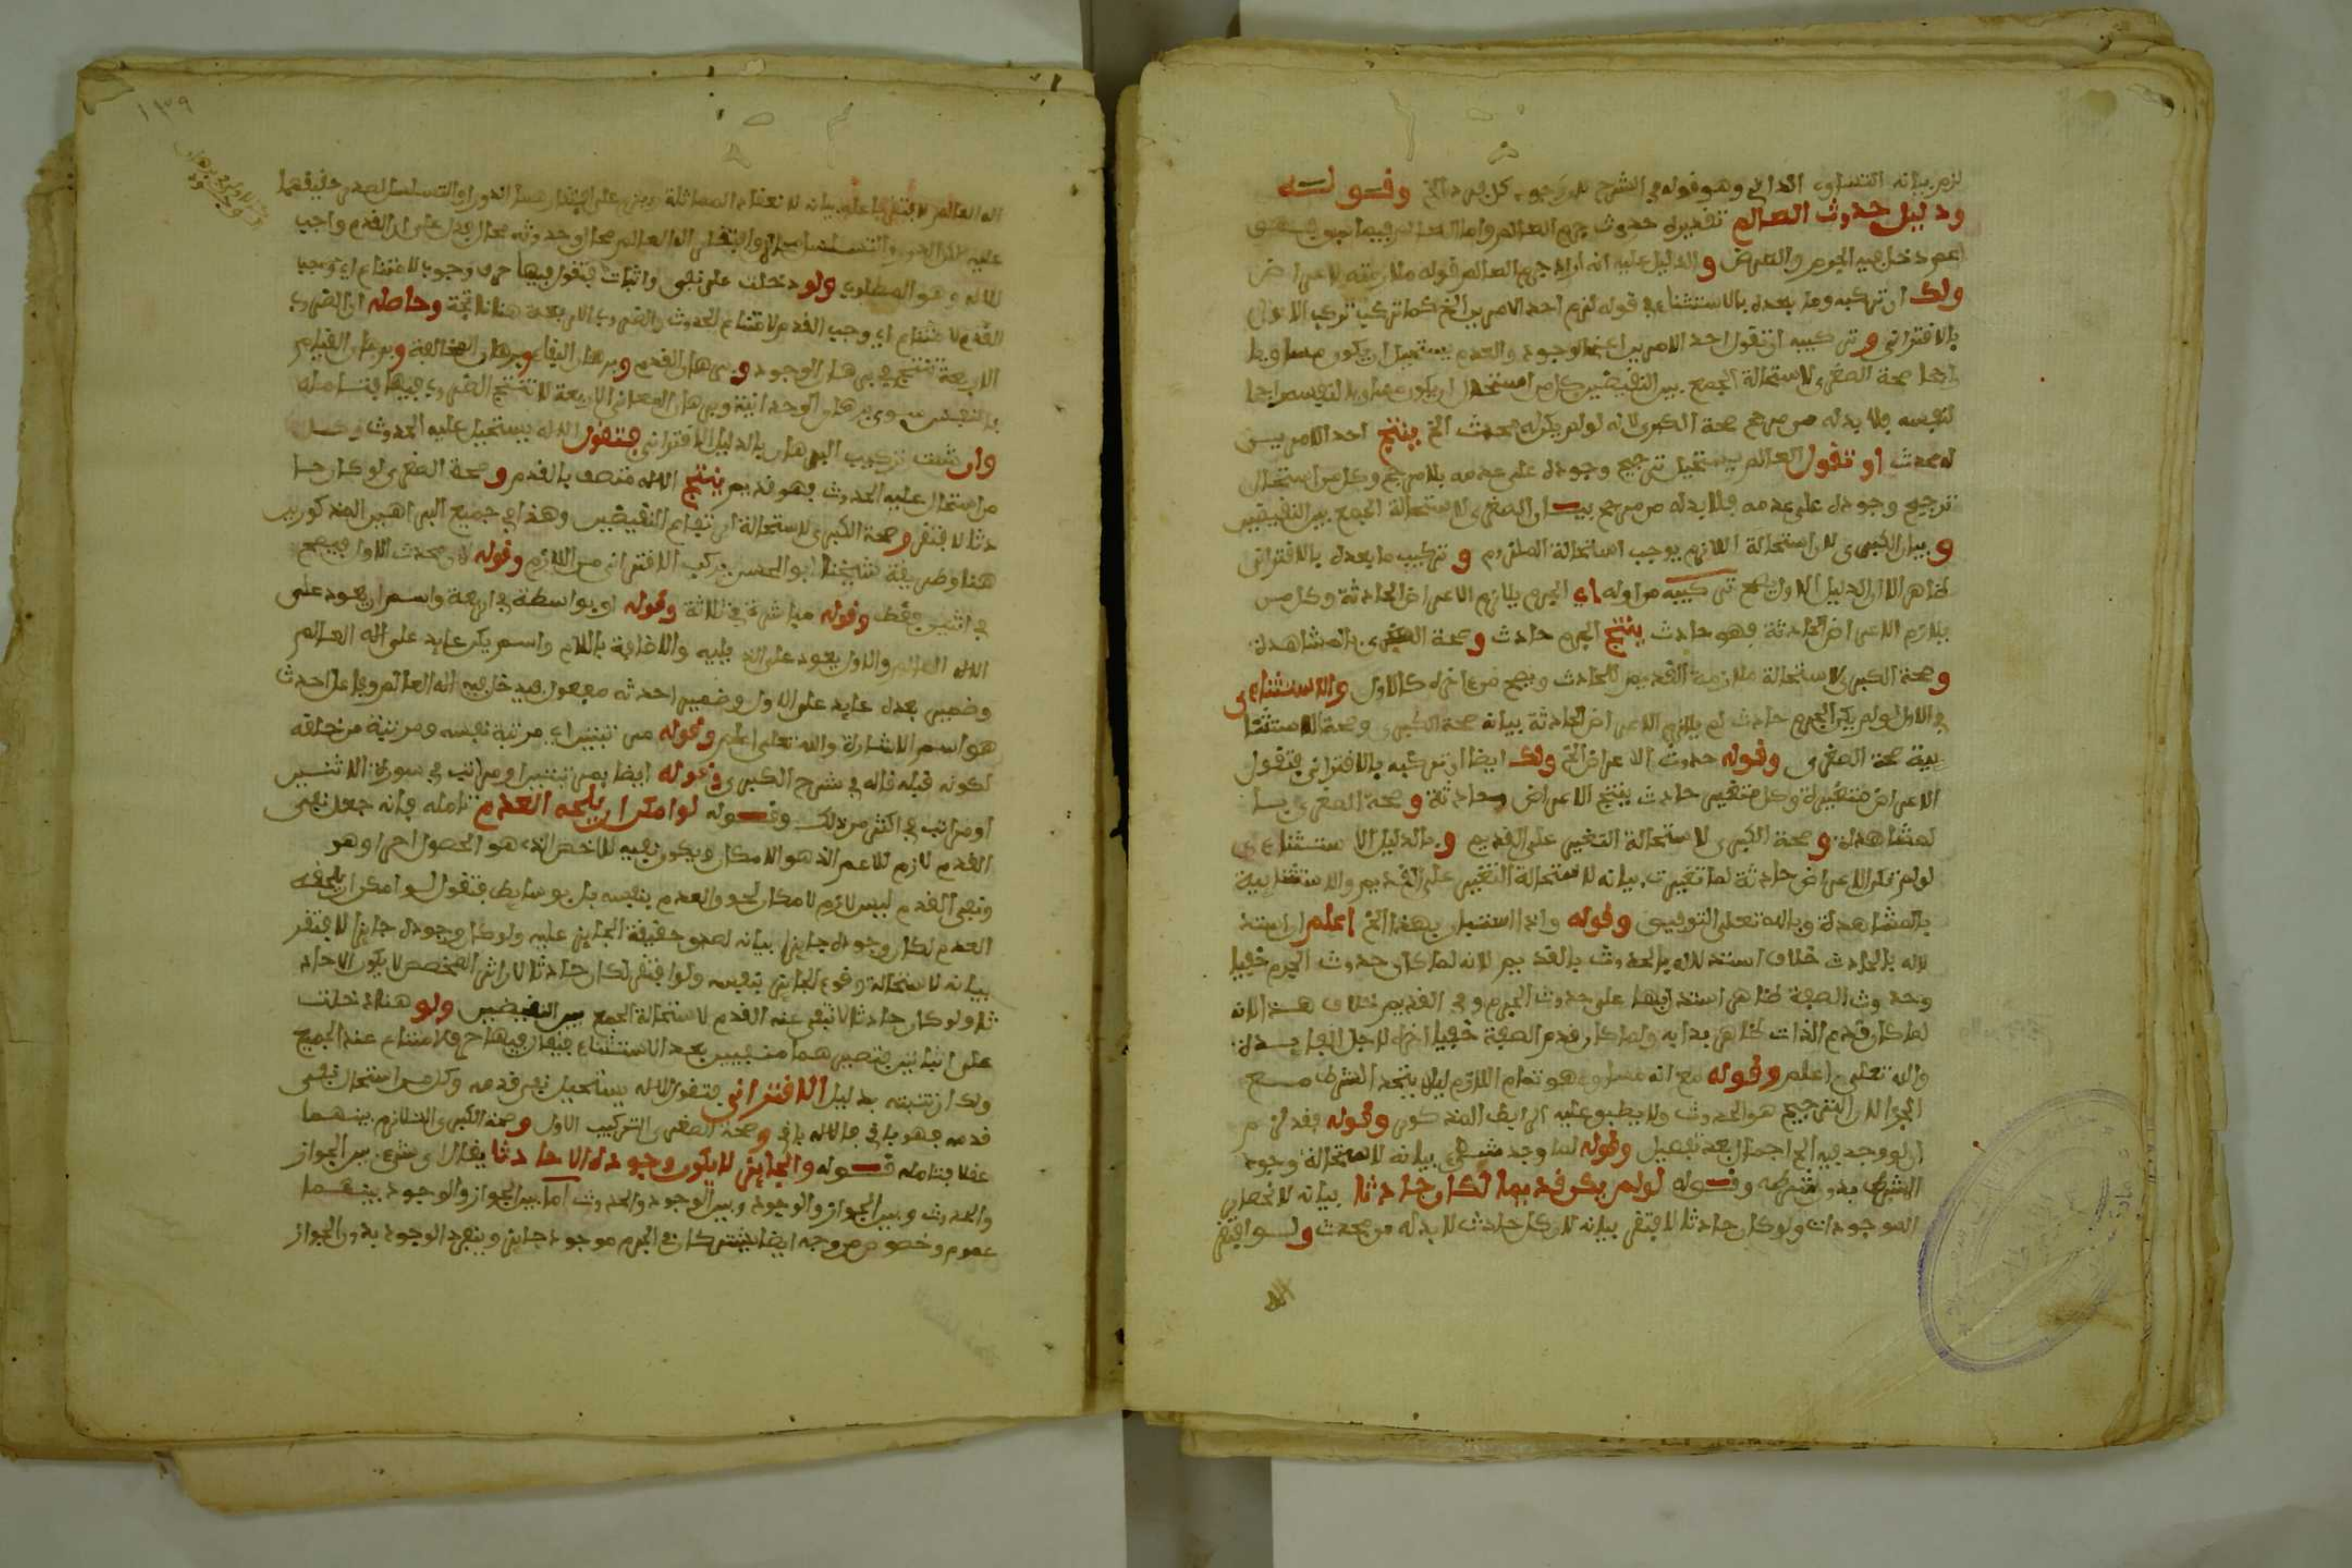 لزم بيانه التساوي الذاتي وهو قوله في الشرح لان وجود كل فرد الخ وقوله
ودليل حدوث العالم تقديره حدوث جرم العالم واما العالم
اعم دخل فيه الجرم والعرض والدليل عليه انه اراد جرم العالم قوله ملازمته للاعراض
ولك ان تركبه وما بعده بالاستثناءي قوله لزم احد الامرين الخ كما تركب تركيب الاول
بالاقتراني وتركيبه ان تقول احد الامرين اعني الوجود والعدم يستحيل ان يكون مساويا
راجحا صحة الصغرى لاستحالة الجمع بين النقيضين كل من استحال ان يكون مساويا لنفسه راجحا
لنفسه فلا بد له من مرجح صحة الكبرى لانه لو لم يكن له محدث الخ ينتج احد الامرين
له محدث او تقول العالم يستحيل ترجيح وجوده على عدمه بلا مرجح وكل من استحال
ترجيح وجوده على عدمه فلا بد له من مرجح بيان الصغرى لاستحالة الجمع بين النقيضين
وبيان الكبرى لان استحالة اللازم يوجب استحالة الملزوم وتركيب ما بعده بالاقتراني
ظاهر الا ان الدليل الاول يصح تركيبه من اوله اي الجرم يلازم الاعراض الحادثة وكل من
يلازم الاعراض الحادثة فهو حادث ينتج الجرم حادث وصحة الصغرى بالمشاهدة
وصحة الكبرى لاستحالة ملازمة القديم للحادث ويصح من اخره كالاول والاستثناءي
في الاول لو لم يكن الجرم حادث لم يلازم الاعراض الحادثة بيانه صحة الكبرى وصحة الاستثنا
ئية صحة الصغرى وقوله حدوث الاعراض الخ ولك ايضا ان تركبه بالاقتراني فتقول
الاعراض متغيرة وكل متغير حادث ينتج الاعراض حادثة وصحة الصغرى با
لمشاهدة وصحة الكبرى لاستحالة التغير على القديم وبالدليل الاستثناءي
لو لم تكن الاعراض حادثة لما تغيرت بيانه لاستحالة التغير على القديم والاستثنائية
بالمشاهدة وبالله تعلى التوفيق وقوله وانما استدل بهذا الخ اعلم ان استد
لاله بالحادث خلاف استدلاله بالحدوث بالقديم لانه لما كان حدوث الجرم خفيا
وحدوث الصفة ظاهر استدل بها على حدوث الجرم وفي القديم خلاف هذا لانه
لما كان قدم الذات ظاهر بدا به ولما كان قدم الصفة خفيا اخره لاجل الفايدة
والله تعلى اعلم وقوله مع انه مساو هو تمام اللازم ليلا يتحد الشرط مع
الجزا لان الترجيح هو الحدوث ولا يطبق عليه الرابط المذكور وقوله فقد لزم
ان لو وجد فيه الخ اجمال بعد تفصيل وقوله لما وجد شيء بيانه لاستحالة وجود
المشروط بدون شرطه وقوله لو لم يكن قديما لكان حادثا بيانه لانحصار
الموجودات ولو كان حادثا لافتقر بيانه لان كل حادث لا بد له من محدث ولو افتقر
اله العالم لافتقر فاعله بيانه لانعقاد المماثلة بينهما الدور او التسلسل لصدق حقيقتهما
عليه لكن الدور والتسلسل محال وافتقار اله العالم محال وحدوثه محال فدل على ان القدم واجب
للاله وهو المطلوب ولو دخلت على نفي واثبات فتقول فيها حرف وجوب لامتناع اي وجب
القدم لامتناع اي وجب القدم لامتناع الحدوث والضروب الاربعة هنا ناتجة وحاصله ان الضروب
الاربعة تنتج في برهان الوجود وبرهان القدم وبرهان البقاء وبرهان المخالفة وبرهان القيام
بالنفس سوى برهان الوحدانية وبرهان المعاني الاربعة لا تنتج الضروب فيها فتامله
وان شئت تركيب البرهان بالدليل الاقتراني فتقول الاله يستحيل عليه الحدوث وكل
من استحال عليه الحدوث فهو قديم ينتج الاله متصف بالقدم وصحة الصغرى لو كان حا
دثا لافتقر وصحة الكبرى لاستحالة ارتفاع النقيضين وهذا في جميع البراهين المذكورين
هنا وطريقة شيخنا ابو الحسن يركب الاقتراني من اللازم وقوله لان محدث الاول فيصح
في اثنين فقط وقوله مباشرة في ثلاثة وقوله او بواسطة في اربعة واسم ان يعود على
الاله العالم والاول يعود على الذي يليه والاضافة باللام واسم يكن عايد على اله العالم
وضمير بعده عايد على الاول وضمير احدثه مفعول فيدخل فيه اله العالم وفاعل احدث
هو اسم الاشارة والله تعلى اعلم وقوله مرتبتين اي مرتبة نفسه ومرتبة من خلقه
لكونه قبله قاله في شرح الكبرى وقوله ايضا بمرتبتين او مراتب في صورة الاثنين
او مراتب في اكثر من ذلك وقوله لو امكن ان يلحقه العدم تامله فانه جعل نفي
القدم لازم للاعم الذي هو الامكان ويكون نفيه للاخص الذي هو الحصول احرى وهو
ونفي القدم ليس لازم لامكان لحوق العدم بنفسه بل بوسايط فتقول لو امكن ان يلحقه
العدم لكان وجوده جايزا بيانه لصدق حقيقة الجايز عليه ولو كان وجوده جايزا لافتقر
بيانه لاستحالة وقوع الجايز بنفسه ولو افتقر لكان حادثا لان اثر المخصص لا يكون الا حاد
ثا ولو كان حادثا لانتفى عنه القدم لاستحالة الجمع بين النقيضين ولو هنا دخلت
على اثباتين فتصيرهما منفيين بعد الاستثناء فيقال فيها حرف امتناع عند الجميع
ولك ان تثبته بدليل الاقتراني فتقول الاله يستحيل نفي قدمه وكل من استحال نفي
قدمه فهو باقي فالاله باقي وصحة الصغرى التركيب الاول وصحة الكبرى التلازم بينهما
عقلا فتامله قوله والجايز لا يكون وجوده الا حادثا يقال اي شيء بين الجواز
والحدوث وبين الجواز والوجود وبين الوجود والحدوث اما بين الجواز والوجود بينهما
عموم وخصوص من وجه ايضا يشتركان في الجرم موجود جايز وينفرد الوجود بدون الجواز
١٣٩